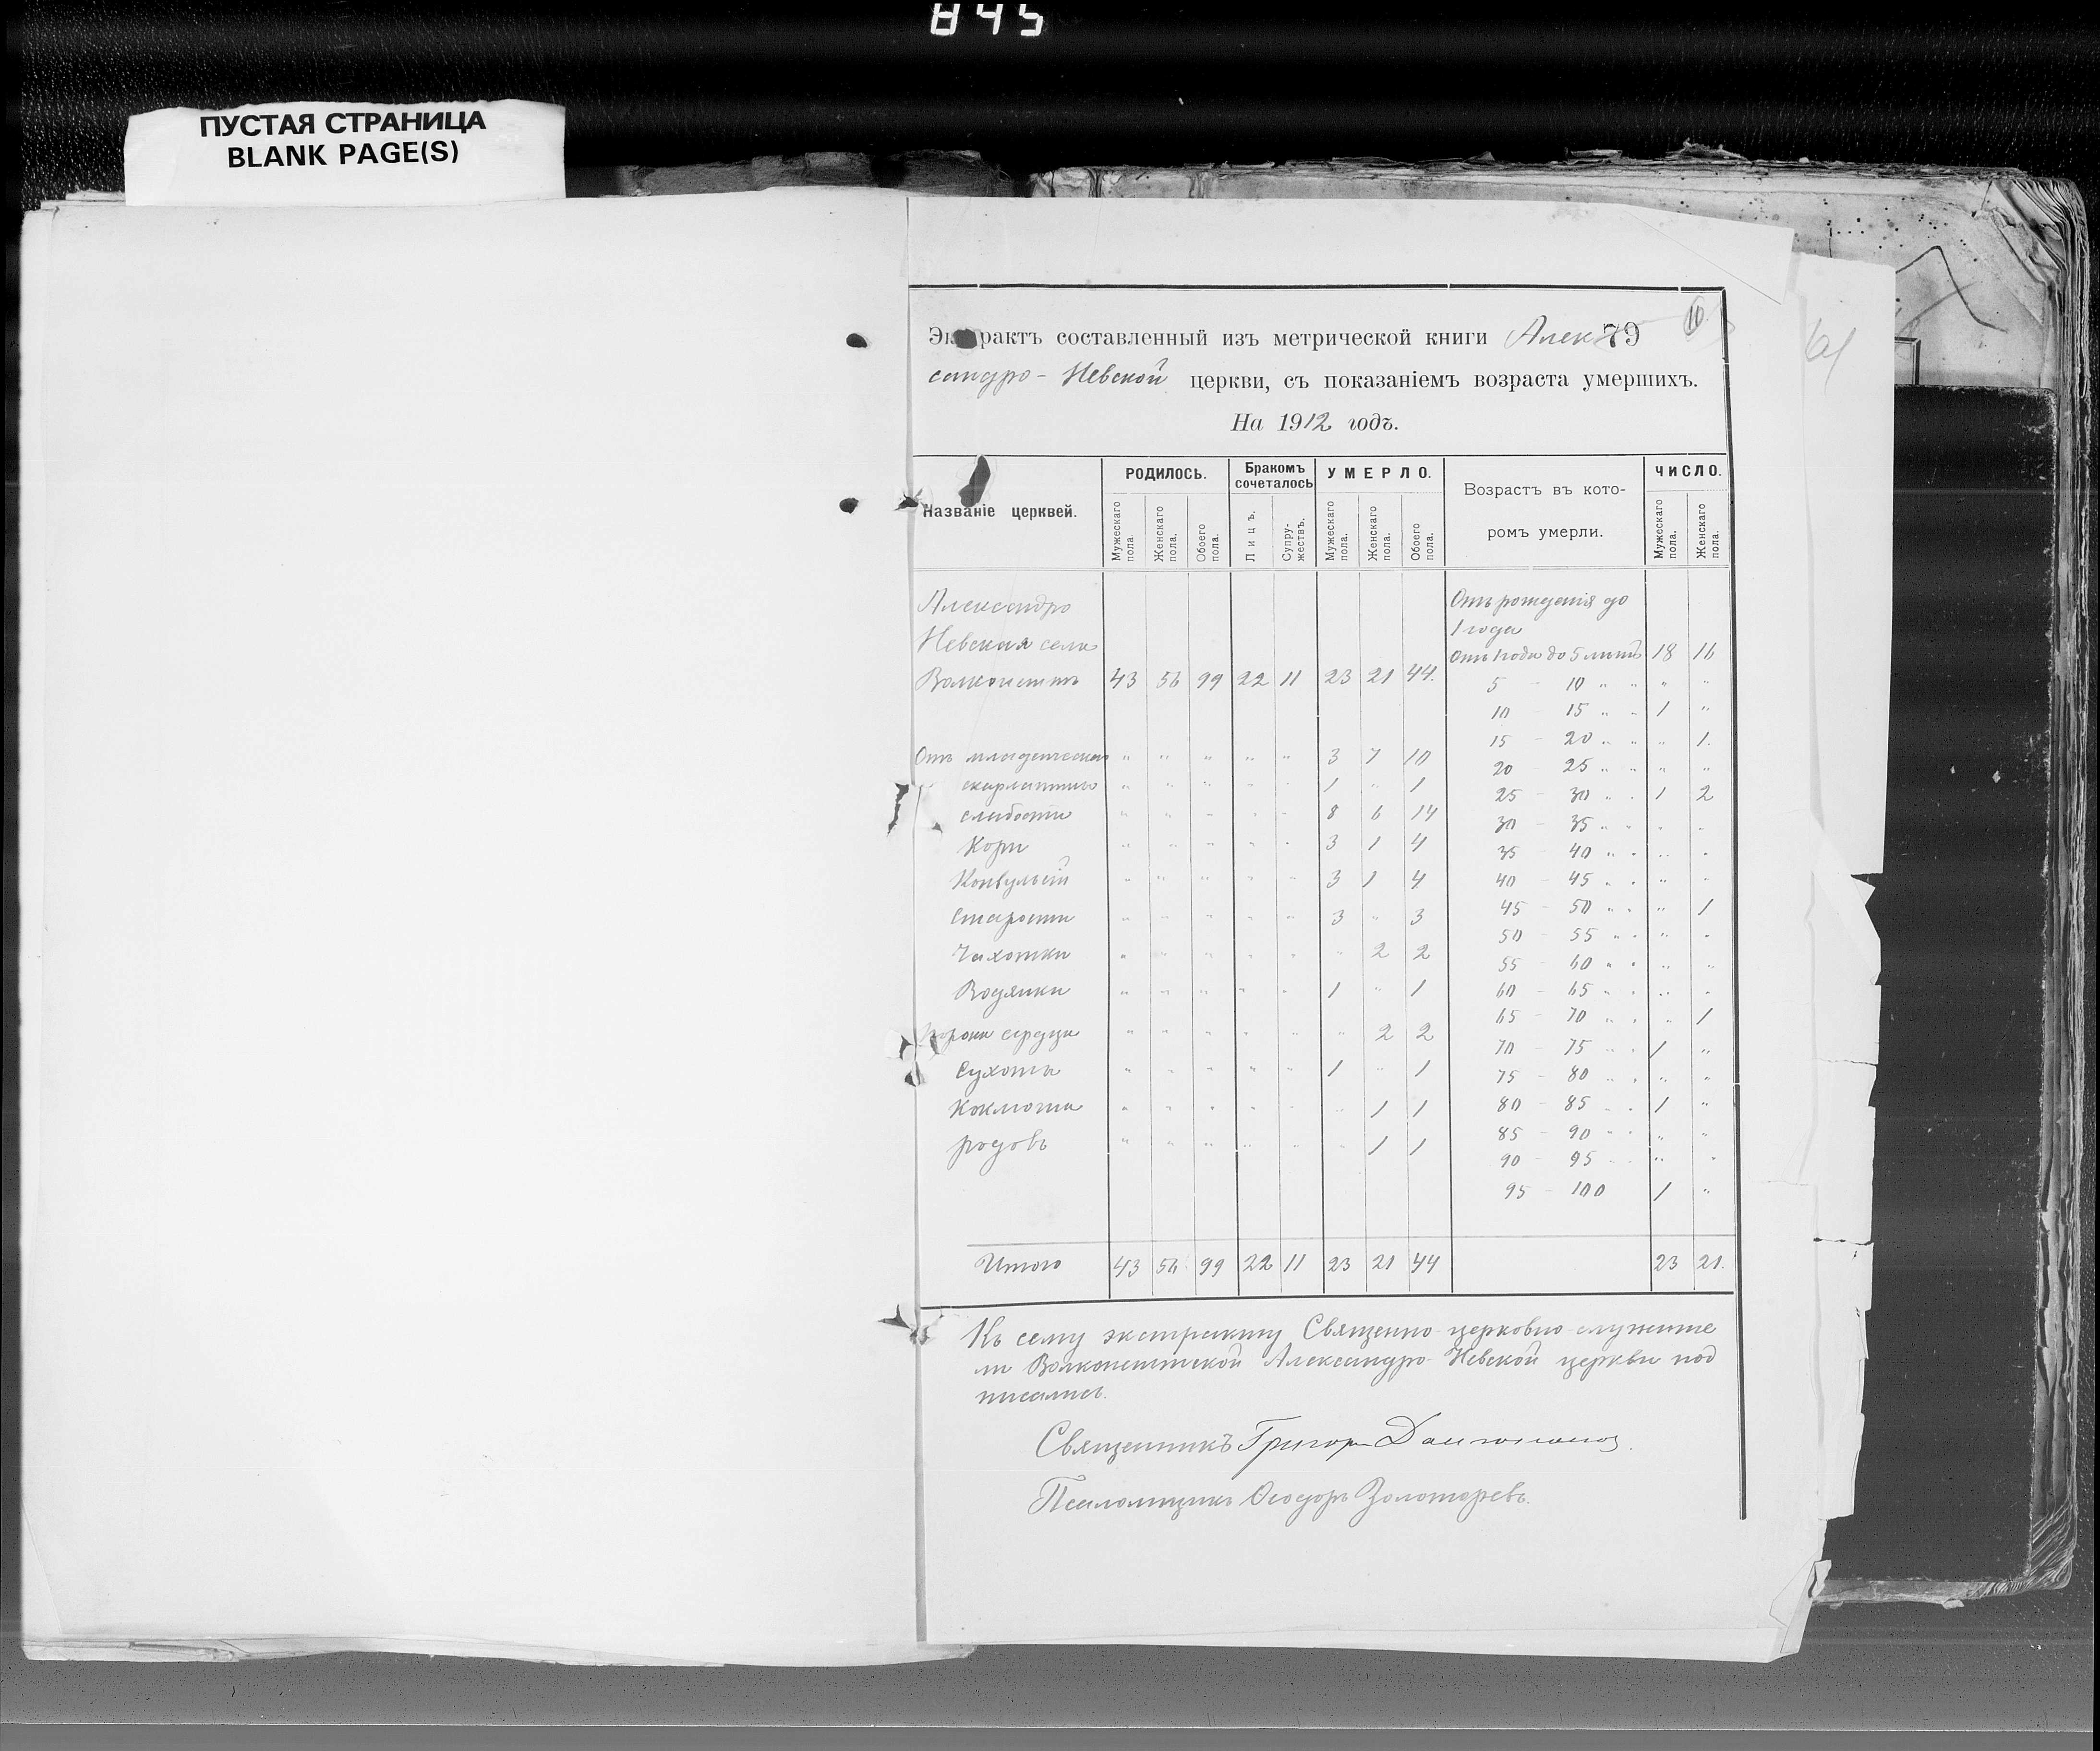 845
ПУСТАЯ СТРАНИЦА
BLANK PAGE(S)
10
Экстрактъ составленный изъ метрической книги Алек 79
сандро-Невской церкви, съ показаніемъ возраста умершихъ.
На 1912 годъ.
Названіе церквей. РОДИЛОСЬ. Бракомъ сочеталось УМЕРЛО. Возрастъ въ кото-ромъ умерли. ЧИСЛО.
Мужескаго пола. Женскаго пола. Обоего пола. Лицъ. Супру-жествъ. Мужескаго пола. Женскаго пола. Обоего пола. Мужескаго пола. Женскаго пола.
Александро
Невская села
Волконештъ 43 56 99 22 11 23 21 44.
Отъ младенческой " " " " " 3 7 10
скарлатины " " " " " 1 " 1
слабости " " " " " 8 6 14
Кори " " " " " 3 1 4
Конвульсій " " " " " 3 1 4
Старости " " " " " 3 " 3
Чахотки " " " " " " 2 2
Водянки " " " " " 1 " 1
порока сердца " " " " " " 2 2
Сухоты " " " " " 1 " 1
Коклюша " " " " " " 1 1
родовъ " " " " " " 1 1
Отъ рожденія до
1 года
Отъ 1 года до 5 лѣтъ 18 16
5 - 10 " " " "
10 - 15 " " 1 "
15 - 20 " " " 1.
20 - 25 " " " "
25 - 30 " " 1 2
30 - 35 " " " "
35 - 40 " " " "
40 - 45 " " " "
45 - 50 " " " 1
50 - 55 " " " "
55 - 60 " " " "
60 - 65 " " " "
65 - 70 " " " 1
70 - 75 " " 1 "
75 - 80 " " " "
80 - 85 " " 1 "
85 - 90 " " " "
90 - 95 " " " "
95 - 100 1 "
Итого 43 56 99 22 11 23 21 44 23 21.
Къ сему экстракту Священно-церковно-служите
ли Волконештской Александро-Невской церкви под
писались.
Священникъ Григор
Псаломщикъ Ѳеодоръ Золоторевъ.